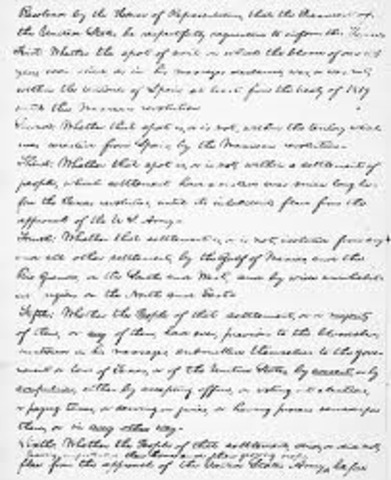 Resolved by the House of Representatives, that the President of
the United States be respectfully requested to inform this House
First: Whether the spot of soil on which the blood of our
was, or was not,
within the of Spain, at least from the treaty of 1819
until the Mexican revolution
Second: Whether that spot is, or is not, within the territory which
was from Spain, by the Mexican revolution.
Third: Whether that spot is, or is not, within a settlement of
people, which settlement had existed ever since long be-
fore the Texas revolution, until its inhabitants fled from the
approach of the U.S. Army.
Fourth: Whether that settlement is, or is not, isolated from any
and all other settlements, by the Gulf of Mexico and the
Rio Grande, on the South and West, and by wide uninhabited
regions on the North and East.
Fifth: Whether the People of that settlement, or a majority
of them, or any of them, had ever, previous to the bloodshed,
mentioned in his message, submitted themselves to the govern-
ment or laws of Texas, or of the United States, by consent, or by
compulsion, either by accepting office, or voting at elections,
or paying taxes, or serving on juries, or having process served upon
them, or in any other way.
Sixth: Whether the People of that settlement, did, or did not,
flee from the approach of the United States Army,